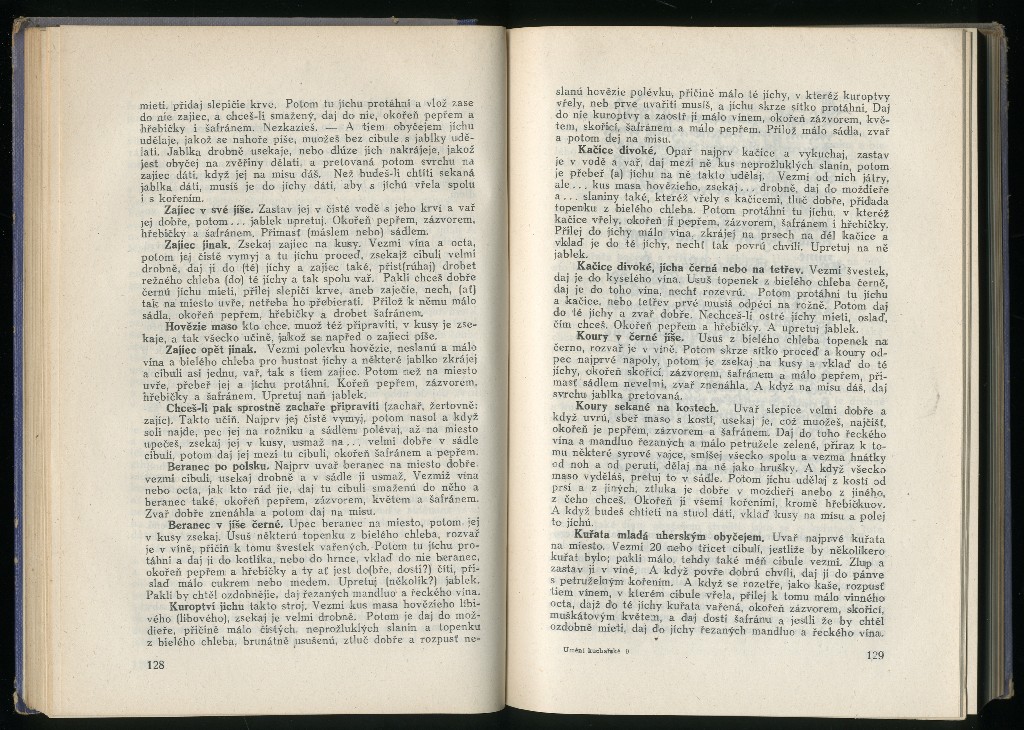 mieti, přidaj slepičie krve. Potom tu jíchu protáhni a vlož zase
do nie zajiec, a chceš-li smažený, daj do nie, okořeň pepřem a
hřebíčky i šafránem. Nezkazieš. — A tiem obyčejem jíchu
udělaje, jakož se nahoře píše, muožeš bez cibule s jablky udě-
lati. Jablka drobně usekaje, nebo dlúze jich nakrájeje, jakož
jest obyčej na zvěřiny dělati, a pretovaná potom svrchu na
zajiec dáti, když jej na mísu dáš. Než budeš-li chtíti sekaná
jablka dáti, musíš je do jíchy dáti, aby s jíchú vřela spolu
i s kořením.
Zajiec v své jíše. Zastav jej v čisté vodě s jeho krví a vař
jej dobře, potom... jablek upretuj. Okořeň pepřem, zázvorem,
hřebíčky a šafránem. Přimasť (máslem nebo) sádlem.
Zajiec jinak. Zsekaj zajiec na kusy. Vezmi vína a octa,
potom jej čistě vymyj a tu jíchu proceď, zsekajž cibuli velmi
drobně, daj ji do (té) jíchy a zajiec také, přist(rúhaj) drobet
režného chleba (do) té jíchy a tak spolu vař. Pakli chceš dobře
černú jíchu mieti, přilej slepičí krve, aneb zaječie, nech, (ať)
tak na miesto uvře, netřeba ho přebierati. Přilož k němu málo
sádla, okořeň pepřem, hřebíčky a drobet šafránem.
Hovězie maso kto chce, muož též připraviti, v kusy je zse-
kaje, a tak všecko učině, jakož se napřed o zajieci píše.
Zajiec opět jinak. Vezmi polevku hovězie, neslanú a málo
vína a bielého chleba pro hustost jíchy a některé jablko zkrájej
a cibuli asi jednu, vař, tak s tiem zajiec. Potom než na miesto
uvře, přebeř jej a jíchu protáhni. Kořeň pepřem, zázvorem,
hřebíčky a šafránem. Upretuj naň jablek.
Chceš-li pak sprostně zachaře připraviti (zachař, žertovně:
zajíc). Takto učiň. Najprv jej čistě vymyj, potom nasol a když
soli najde, pec jej na rožníku a sádlem polévaj, až na miesto
upečeš, zsekaj jej v kusy, usmaž na... velmi dobře v sádle
cibuli, potom daj jej mezi tu cibuli, okořeň šafránem a pepřem.
Beranec po polsku. Najprv uvař beranec na miesto dobře,
vezmi cibuli, usekaj drobně a v sádle ji usmaž. Vezmiž vína
nebo octa, jak kto rád jie, daj tu cibuli smaženú do něho a
beranec také, okořeň pepřem, zázvorem, květem a šafránem.
Zvař dobře znenáhla a potom daj na mísu.
Beranec v jíše černé. Upec beranec na miesto, potom jej
v kusy zsekaj. Usuš některú topenku z bielého chleba, rozvař
je v víně, přičiň k tomu švestek vařených. Potom tu jíchu pro-
táhni a daj ji do kotlíka, nebo do hrnce, vklaď do nie beranec,
okořeň pepřem a hřebíčky a ty ať jest do(bře, dosti?) čiti, při-
slaď málo cukrem nebo medem. Upretuj (několik?) jablek.
Pakli by chtěl ozdobnějie, daj řezaných mandluo a řeckého vína.
Kuroptvi jíchu takto stroj. Vezmi kus masa hovězího libi-
vého (libového), zsekaj je velmi drobně. Potom je daj do mož-
dieře, přičině málo čistých, neprožluklých slanin a topenku
z bielého chleba, brunátně usušenú, ztluč dobře a rozpusť ne-
128
slanú hovězie polévku, přičině málo té jíchy, v kteréž kuroptvy
vřely, neb prve uvařiti musíš, a jíchu skrze sítko protáhni. Daj
do nie kuroptvy a zaostř ji málo vínem, okořeň zázvorem, kvě-
tem, skořicí, šafránem a málo pepřem. Přilož málo sádla, zvař
a potom dej na mísu.
Kačice divoké. Opař najprv kačice a vykuchaj, zastav
je v vodě a vař, daj mezi ně kus neprožluklých slanin, potom
je přebeř (a) jíchu na ně takto udělaj. Vezmi od nich játry,
ale... kus masa hovězieho, zsekaj... drobně, daj do moždieře
a... slaniny také, kteréž vřely s kačicemi, tluč dobře, přidada
topenku z bielého chleba. Potom protáhni tu jíchu, v kteréž
kačice vřely, okořeň ji pepřem, zázvorem, šafránem i hřebíčky.
Přilej do jíchy málo vína, zkrájej na prsech na dél kačice a
vklaď je do té jíchy, nechť tak povrú chvíli. Upretuj na ně
jablek.
Kačice divoké, jícha černá nebo na tetřev. Vezmi švestek,
daj je do kyselého vína. Usuš topenek z bielého chleba černě,
daj je do toho vína, nechť rozevrú. Potom protáhni tu jíchu
a kačice, nebo tetřev prvé musíš odpéci na rožně. Potom daj
do té jíchy a zvař dobře. Nechceš-li ostré jíchy mieti, oslaď,
čím chceš. Okořeň pepřem a hřebíčky. A upretuj jablek.
Koury v černé jíše. Usuš z bielého chleba topenek na
černo, rozvař je v víně. Potom skrze sítko proceď a koury od-
pec najprvé napoly, potom je zsekaj na kusy a vklaď do té
jíchy, okořeň skořicí, zázvorem, šafránem a málo pepřem, při-
masť sádlem nevelmi, zvař znenáhla. A když na mísu dáš, daj
svrchu jablka pretovaná.
Koury sekané na kostech. Uvař slepice velmi dobře a
když uvrú, sbeř maso s kostí, usekaj je, což muožeš, najčišť,
okořeň je pepřem, zázvorem a šafránem. Daj do toho řeckého
vína a mandluo řezaných a málo petružele zelené, přiraz k to-
mu některé syrové vajce, smíšej všecko spolu a vezma hnátky
od noh a od perutí, dělaj na ně jako hrušky. A když všecko
maso vyděláš, pretuj to v sádle. Potom jíchu udělaj z kostí od
prsí a z jiných, ztluka je dobře v moždieři anebo z jiného,
z čeho chceš. Okořeň ji všemi kořeními, kromě hřebíčkuov.
A když budeš chtieti na stuol dáti, vklaď kusy na mísu a polej
to jíchú.
Kuřata mladá uherským obyčejem. Uvař najprvé kuřata
na miesto. Vezmi 20 nebo třicet cibulí, jestliže by několikero
kuřat bylo; pakli málo, tehdy také méň cibule vezmi. Zlup a
zastav ji v víně. A když povře dobrú chvíli, daj ji do pánve
s petruželným kořením. A když se rozetře, jako kaše, rozpusť
tiem vínem, v kterém cibule vřela, přilej k tomu málo vinného
octa, dajž do té jíchy kuřata vařená, okořeň zázvorem, skořicí,
muškátovým květem, a daj dosti šafránu a jestli že by chtěl
ozdobně mieti, daj do jíchy řezaných mandluo a řeckého vína.
Umění kuchařské 9
129